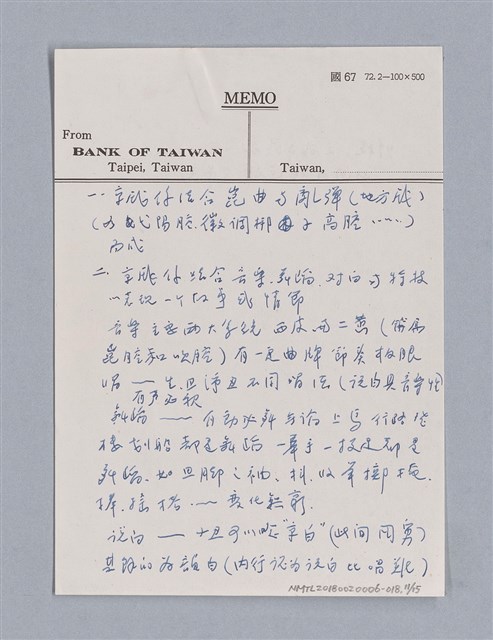 國 67 72.2—100×500
MEMO
From
BANK OF TAIWAN
Taipei, Taiwan
Taiwan,
一、京戲係結合崑曲与亂彈(地方戲)
(如弋陽腔、徽調梆子高腔……)
而成
二、京戲係結合音樂、舞蹈、对白与特技
以表現一个故事或情節
音樂主要两大系統西皮与二黃(偶爲
崑腔和吹腔)有一定曲牌節奏板眼
唱——生旦淨丑不同唱法(說白具音樂性
舞蹈——有動必舞 上馬行路登
樓划船都是舞蹈 一舉手一投足都是
舞蹈、如旦脚之袖、抖、收
——变化無窮.
說白——十丑可以唸"京白"(
其餘的为韻白(内行認为說白比唱難)
NMTL20180020006-018,11/15